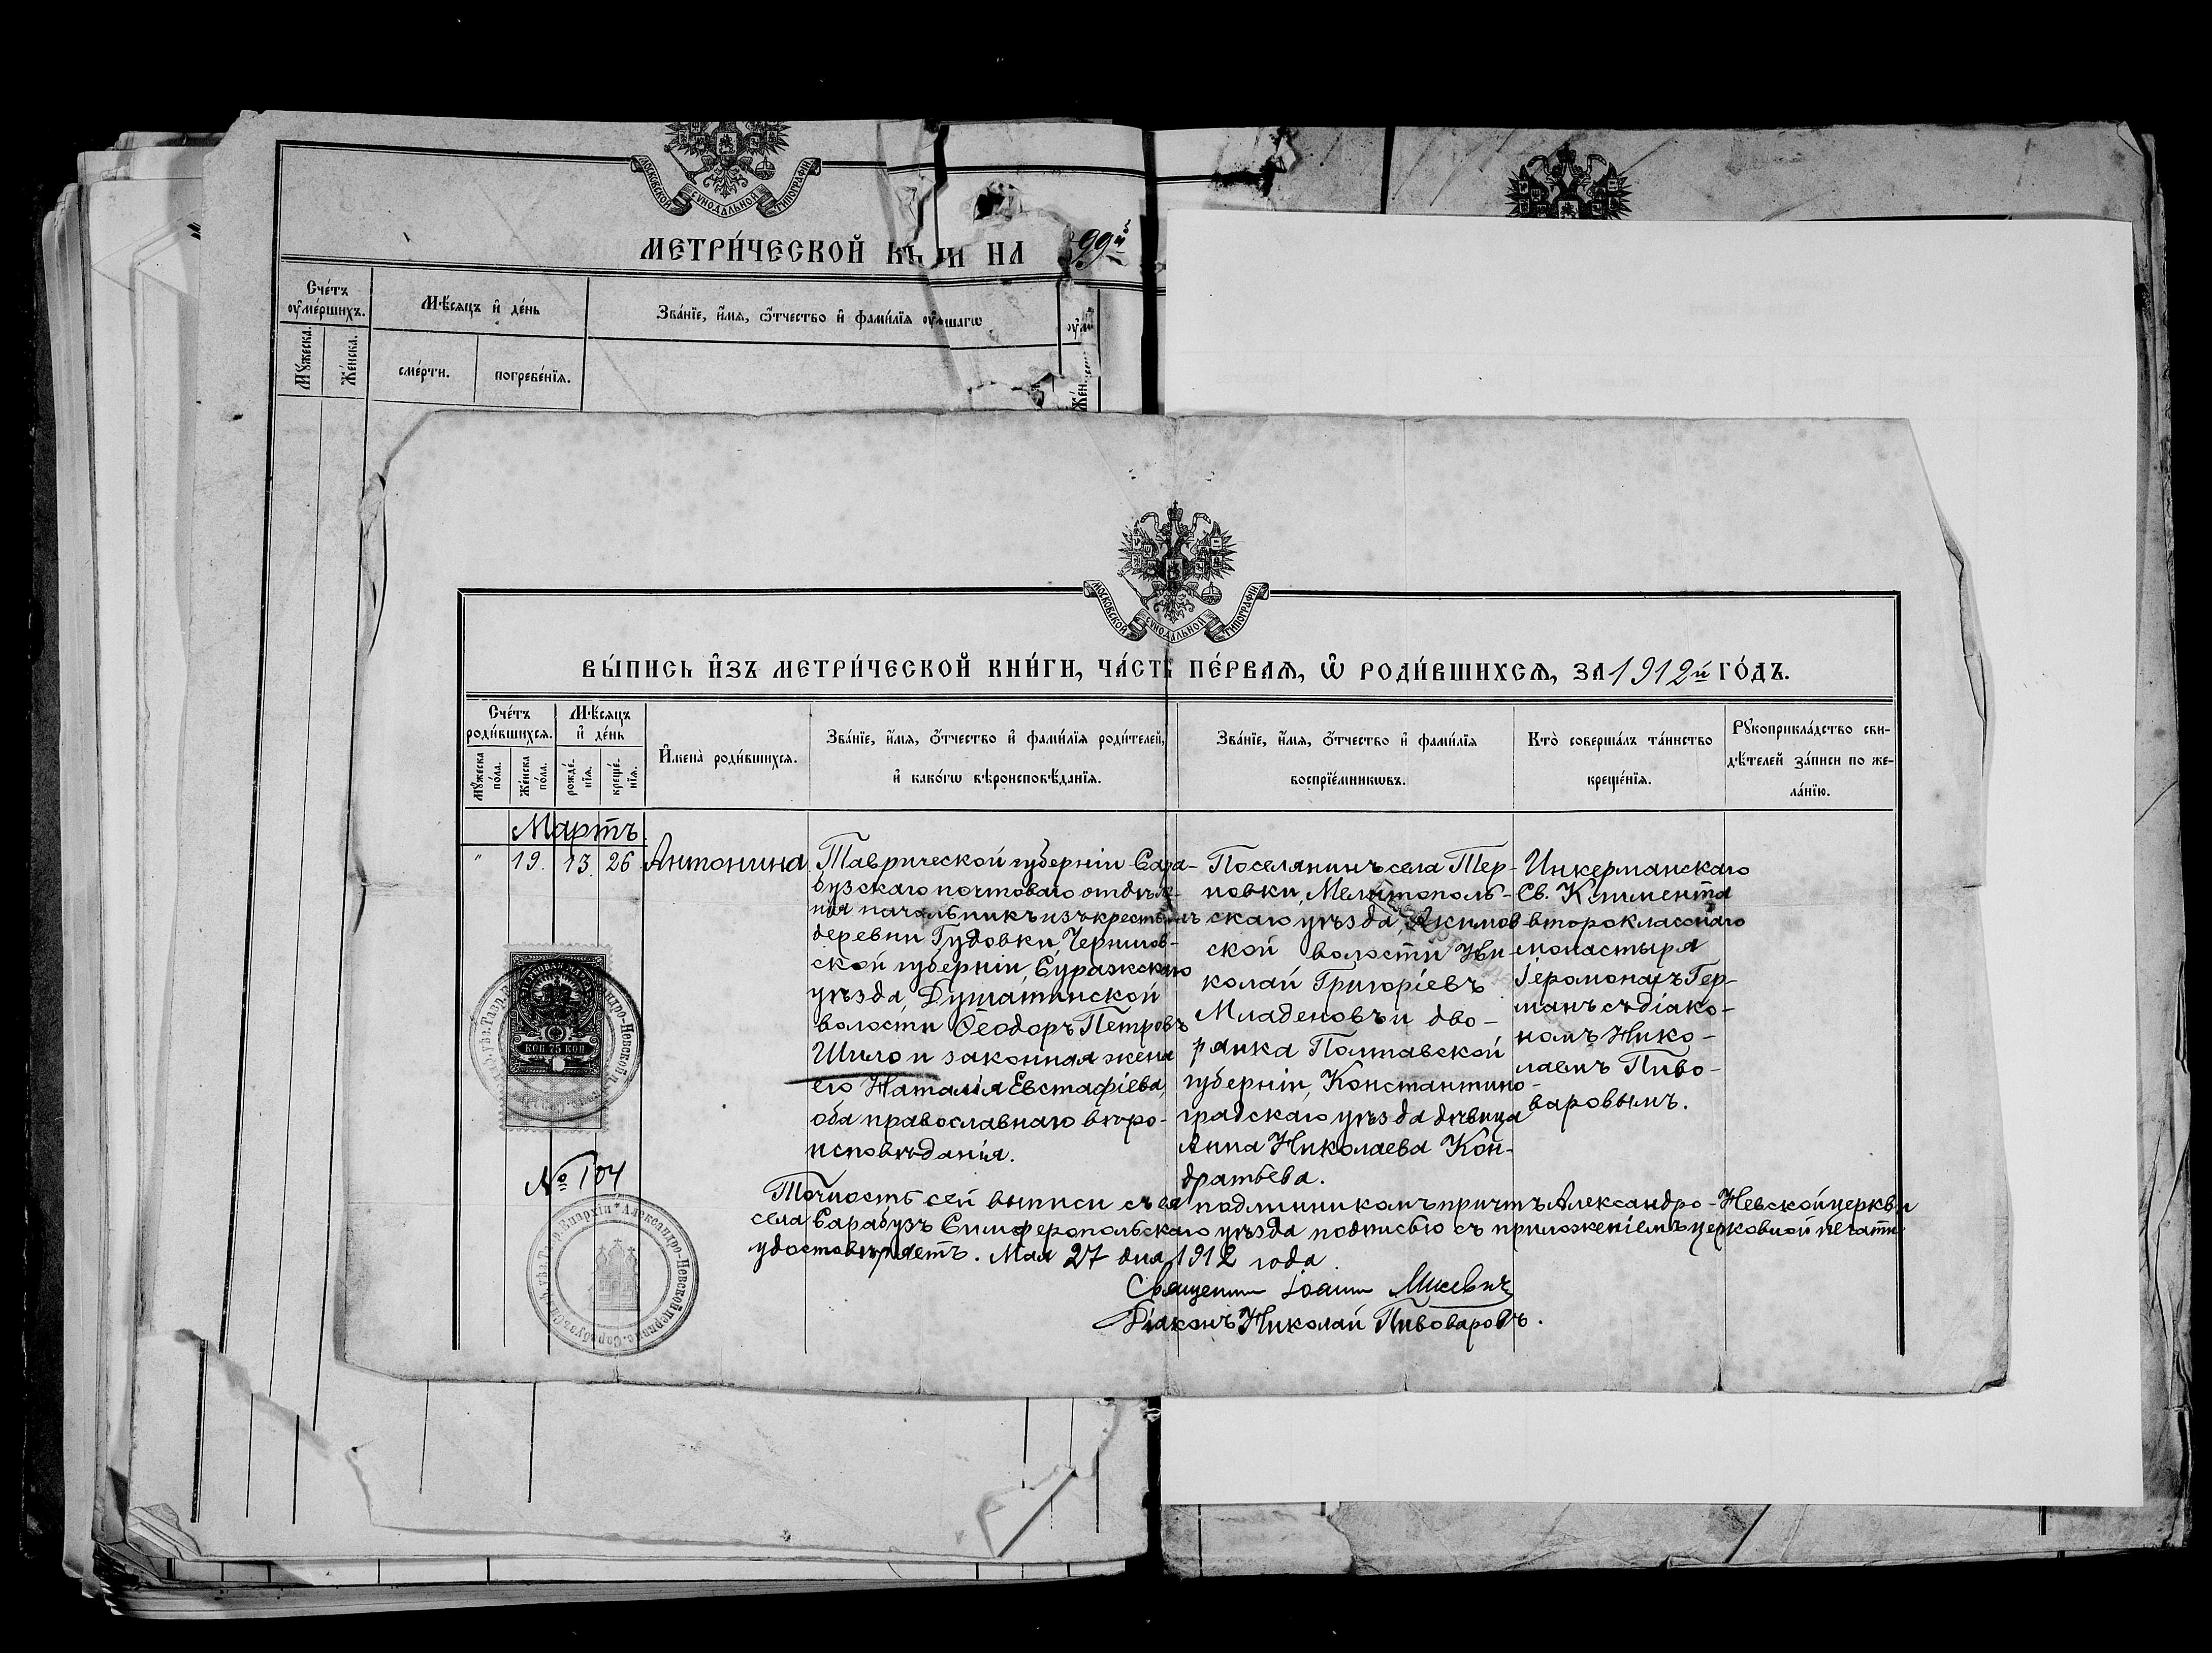 МОСКОВСКОЙ СѴНОДАЛЬНОЙ ТИПОГРАФІИ
МЕТРИ́ЧЕСКОЙ
НА
Сче́тъ
оу҆ме́ршихъ.
Мꙋ́жеска.
Же́нска.
Мѣ́сяцъ и҆ де́нь
сме́рти.
погребе́нїя.
Зва́нїе, и҆́мя, ѻ҆́тчество и҆ фами́лїя
МОСКОВСКОЙ СѴНОДАЛЬНОЙ ТИПОГРАФІИ
ВЫ́ПИСЬ И҆ЗЪ МЕТРИ́ЧЕСКОЙ КНИ́ГИ, ЧА́СТЬ ПЕ́РВАѦ, Ѡ҆ РОДИ́ВШИХСѦ, ЗА 1912й ГО́ДЪ.
Сче́тъ
роди́вшихся.
Мꙋ́жеска
по́ла.
Же́нска
по́ла.
Мѣ́сяцъ
и҆ де́нь
рожде́-
нїя.
креще́-
нїя.
И҆мена̀ роди́вшихся.
Зва́нїе, и҆́мя, ѻ҆́тчество и҆ фами́лїя роди́телей,
и҆ како́гѡ вѣроисповѣ́данїя.
Зва́нїе, и҆́мя, ѻ҆́тчество и҆ фами́лїя
воспрїе́мникѡвъ.
Кто̀ соверша́лъ та́инство
креще́нїя.
Рꙋкоприкла́дство сви-
дѣ́телей за́писи по же-
ла́нїю.
Мартъ.
" 19. 13. 26 Антонина
Таврической губерніи Сара-
бузскаго почтоваго отдѣле-
нія начальникъ изъ крестьянъ
деревни Гудовки, Чернигов-
ской губерніи, Суражскаго
уѣзда, Душатинской
волости Ѳеодоръ Петровъ
Шило и законная жена
его Наталія Евстафіева,
оба православнаго вѣро-
исповѣданія.
Поселянинъ села Тер-
повки, Мелитополь-
скаго уѣзда, Акимов-
ской волости Ни-
колай Григоріевъ
Младеновъ и дво-
рянка Полтавской
губерніи, Константино-
градскаго уѣзда дѣвица
Анна Николаева Кон-
дратьева.
Инкерманскаго
Св. Климента
второкласснаго
монастыря
Іеромонахъ Гер-
манъ съ діако-
номъ Нико-
лаемъ Пиво-
варовымъ.
КОП. 75 КОП
№ 104
Точность сей выписи съ ея подлинникомъ причтъ Александро-Невской церкви
села Сарабузъ Симферопольскаго уѣзда подписью съ приложеніемъ церковной печати
удостовѣряетъ. Мая 27 дня 1912 года.
Священникъ Іоаннъ
Діаконъ Николай Пивоваровъ.
Епархіи * Александро-Невской церкви с. Сарабузъ